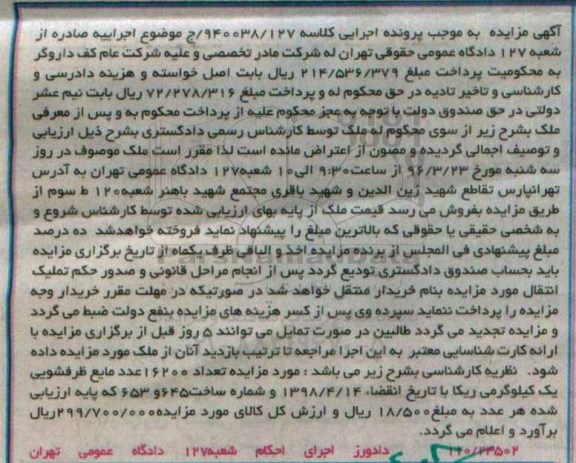 آگهی مزایده به موجب پرونده اجرایی کلاسه ۹۴۰۰۳۸/۱۲۷/ج موضوع اجراییه صادره از
شعبه ۱۲۷ دادگاه عمومی حقوقی تهران له شرکت مادر تخصصی و علیه شرکت عام کف داروگر
به محکومیت پرداخت مبلغ ۲۱۴/۵۳۶/۳۷۹ ریال بابت اصل خواسته و هزینه دادرسی و
کارشناسی و تاخیر تادیه در حق محکوم له و پرداخت مبلغ ۷۲/۲۷۸/۳۱۶ ریال بابت نیم عشر
دولتی در حق صندوق دولت با توجه به عجز محکوم علیه از پرداخت محکوم به و پس از معرفی
ملک بشرح زیر از سوی محکوم له ملک توسط کارشناس رسمی دادگستری بشرح ذیل ارزیابی
و توصیف اجمالی گردیده و مصون از اعتراض مانده است لذا مقرر است ملک موصوف در روز
سه شنبه مورخ ۹۶/۳/۲۳ از ساعت۹:۳۰ الی۱۰ شعبه۱۲۷ دادگاه عمومی تهران به آدرس
تهرانپارس تقاطع شهید زین الدین و شهید باقری مجتمع شهید باهنر شعبه۱۲۰ ط سوم از
طریق مزایده بفروش می رسد قیمت ملک از پایه بهای ارزیابی شده توسط کارشناس شروع و
به شخصی حقیقی یا حقوقی که بالاترین مبلغ را پیشنهاد نماید فروخته خواهدشد ده درصد
مبلغ پیشنهادی فی المجلس از برنده مزایده اخذ و الباقی ظرف یکماه از تاریخ برگزاری مزایده
باید بحساب صندوق دادگستری تودیع گردد پس از انجام مراحل قانونی و صدور حکم تملیک
انتقال مورد مزایده بنام خریدار منتقل خواهد شد در صورتیکه در مهلت مقرر خریدار وجه
مزایده را پرداخت ننماید سپرده وی پس از کسر هزینه های مزایده بنفع دولت ضبط می گردد
و مزایده تجدید می گردد طالبین در صورت تمایل می توانند ۵ روز قبل از برگزاری مزایده با
ارائه کارت شناسایی معتبر به این اجرا مراجعه تا ترتیب بازدید آنان از ملک مورد مزایده داده
شود. نظریه کارشناسی بشرح زیر می باشد : مورد مزایده تعداد ۱۶۲۰۰عدد مایع ظرفشویی
یک کیلوگرمی ریکا با تاریخ انقضاء ۱۳۹۸/۴/۱۴ و شماره ساخت۶۴۵و ۶۵۳ که پایه ارزیابی
شده هر عدد به مبلغ۱۸/۵۰۰ ریال و ارزش کل کالای مورد مزایده۲۹۹/۷۰۰/۰۰۰ریال
برآورد و اعلام می گردد.
۱۱۰/۲۳۵۰۲ دادورز اجرای احکام شعبه۱۲۷ دادگاه عمومی تهران